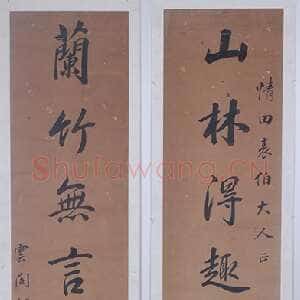 山林得趣
情田袁伯大人正
蘭竹無言
雲閣
Shufawang.cn